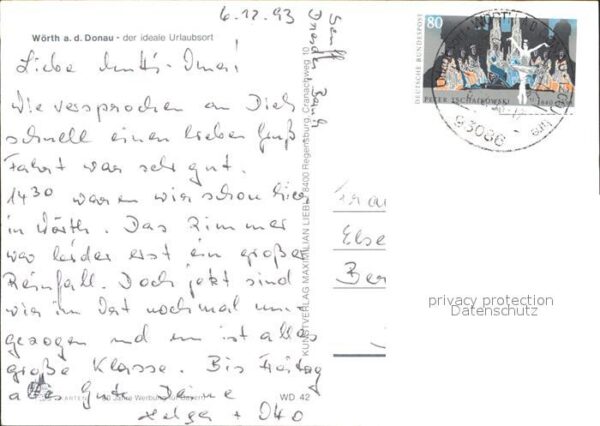 6.12.93
Wörth a. d. Donau - der ideale Urlaubsort
Liebe Mutti - Oma!
Wie versprochen an Dich
schnell einen lieben Gruß
Fahrt war sehr gut.
14 30 waren wir schon hier
in Wörth. Das Zimmer
war leider erst ein großer
Reinfall. Doch jetzt sind
wir im Ort nochmal um-
gezogen und nun ist alles
große Klasse. Bis Freitag
alles Gute Deine
Helga + Otto
Senft
Dresdner Bank
KUNSTVERLAG MAXIMILIAN LIEBL · 8400 Regensburg, Cranachweg 10
Jahre Werbung für Bayern
WD 42
80
DEUTSCHE BUNDESPOST
PETER TSCHAIKOWSKI 1840
WÖRTH A D
93086
Frau
Else
Ber
privacy protection
Datenschutz